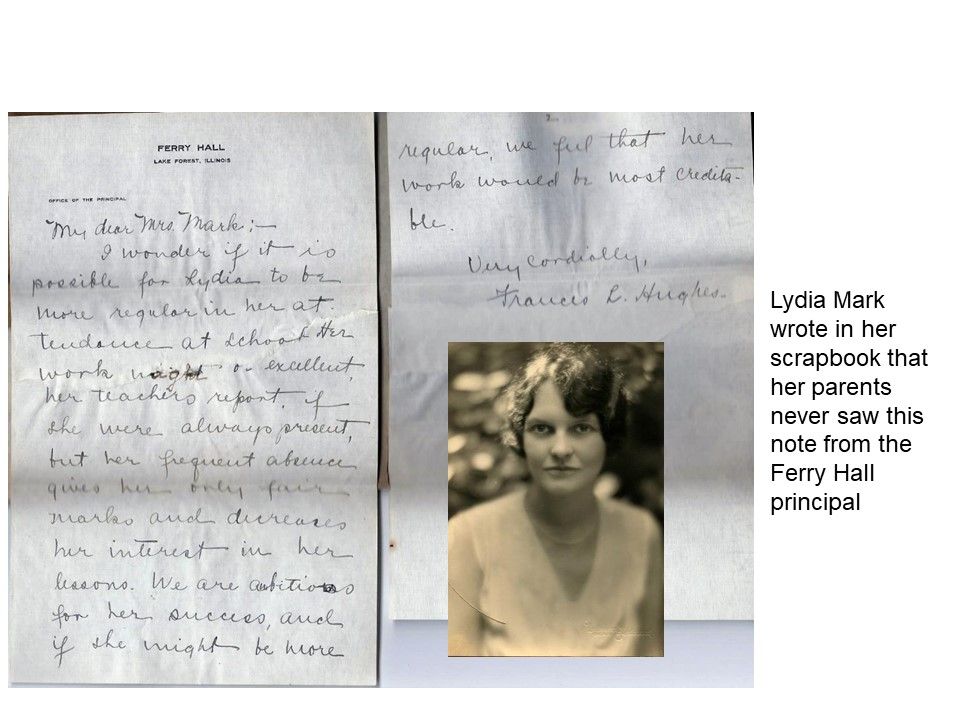 FERRY HALL
LAKE FOREST, ILLINOIS
OFFICE OF THE PRINCIPAL
My dear Mrs. Mark:—
I wonder if it is
possible for Lydia to be
more regular in her at-
tendance at school. Her
work might be excellent,
her teachers report, if
she were always present,
but her frequent absence
gives her only fair
marks and decreases
her interest in her
lessons. We are ambitious
for her success, and
if she might be more
2.
regular, we feel that her
work would be most credita-
ble.
Very cordially,
Francis L. Hughes.
Lydia Mark
wrote in her
scrapbook that
her parents
never saw this
note from the
Ferry Hall
principal